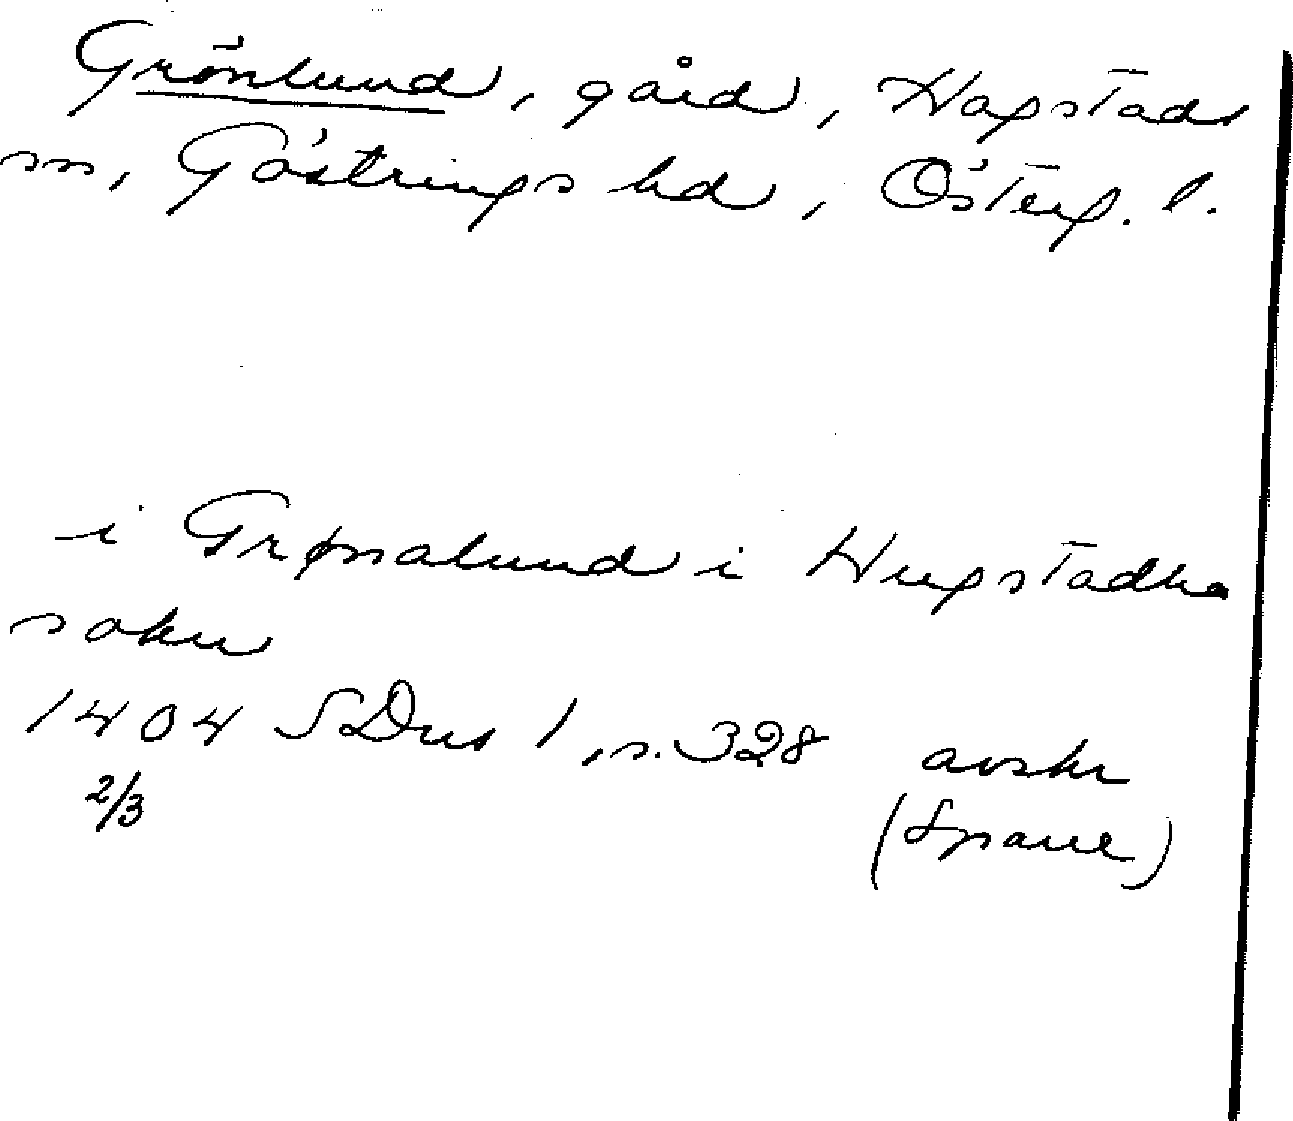 Grönlund, gård, Hogstads
sn, Göstrings hd, Österg. l.
i Grønalund i Hugstadha
sokn
1404 SDns 1, s. 328 avskr
2/3 (Spane)